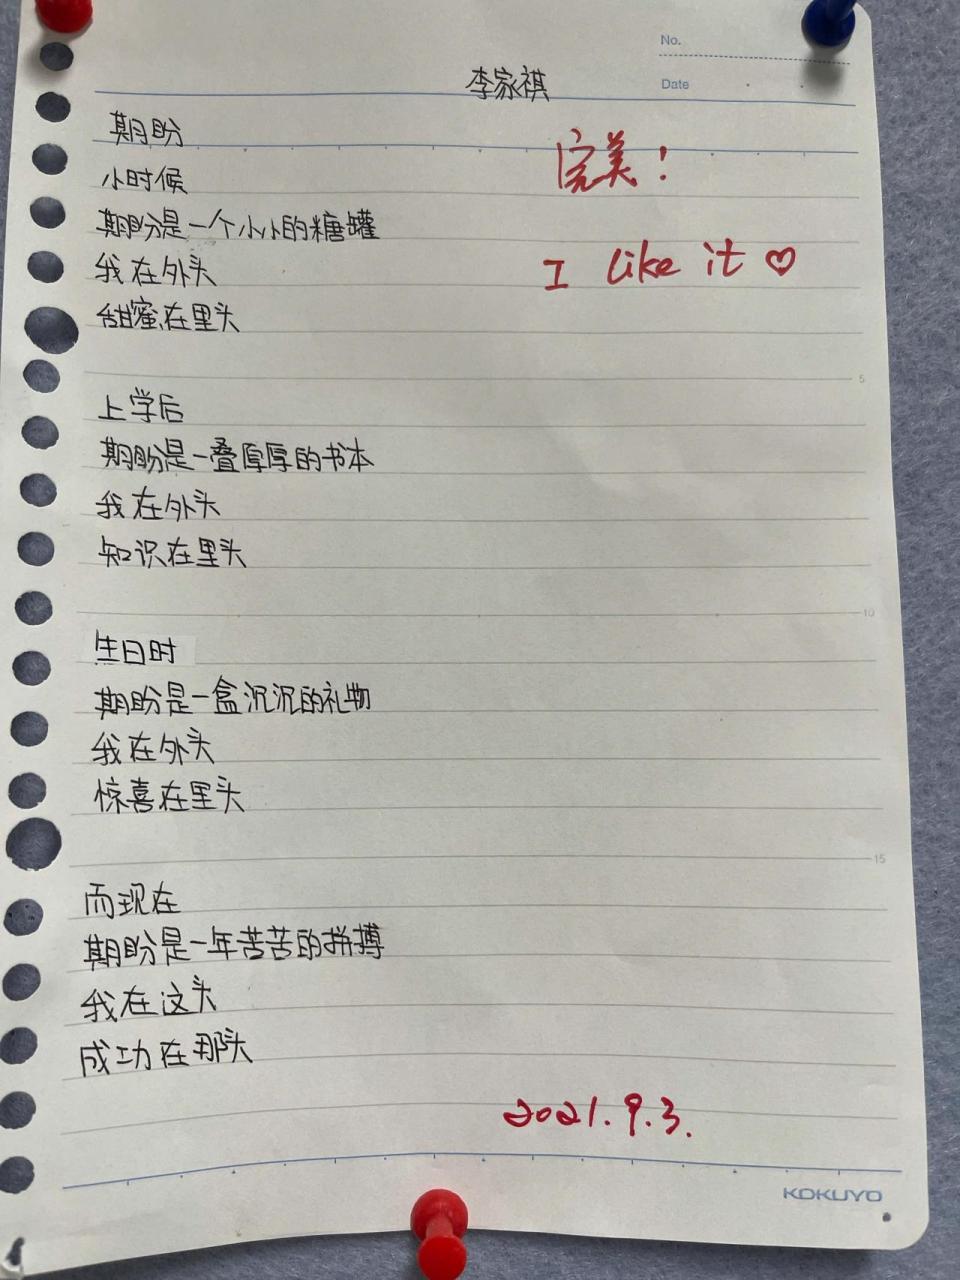 No.
Date
李家祺
期盼
完美！
小时候
期盼是一个小小的糖罐
I like it ♡
我在外头
甜蜜在里头
5
上学后
期盼是一叠厚厚的书本
我在外头
知识在里头
10
生日时
期盼是一盒沉沉的礼物
我在外头
惊喜在里头
15
而现在
期盼是一年苦苦的拼搏
我在这头
成功在那头
2021.9.3.
KOKUYO